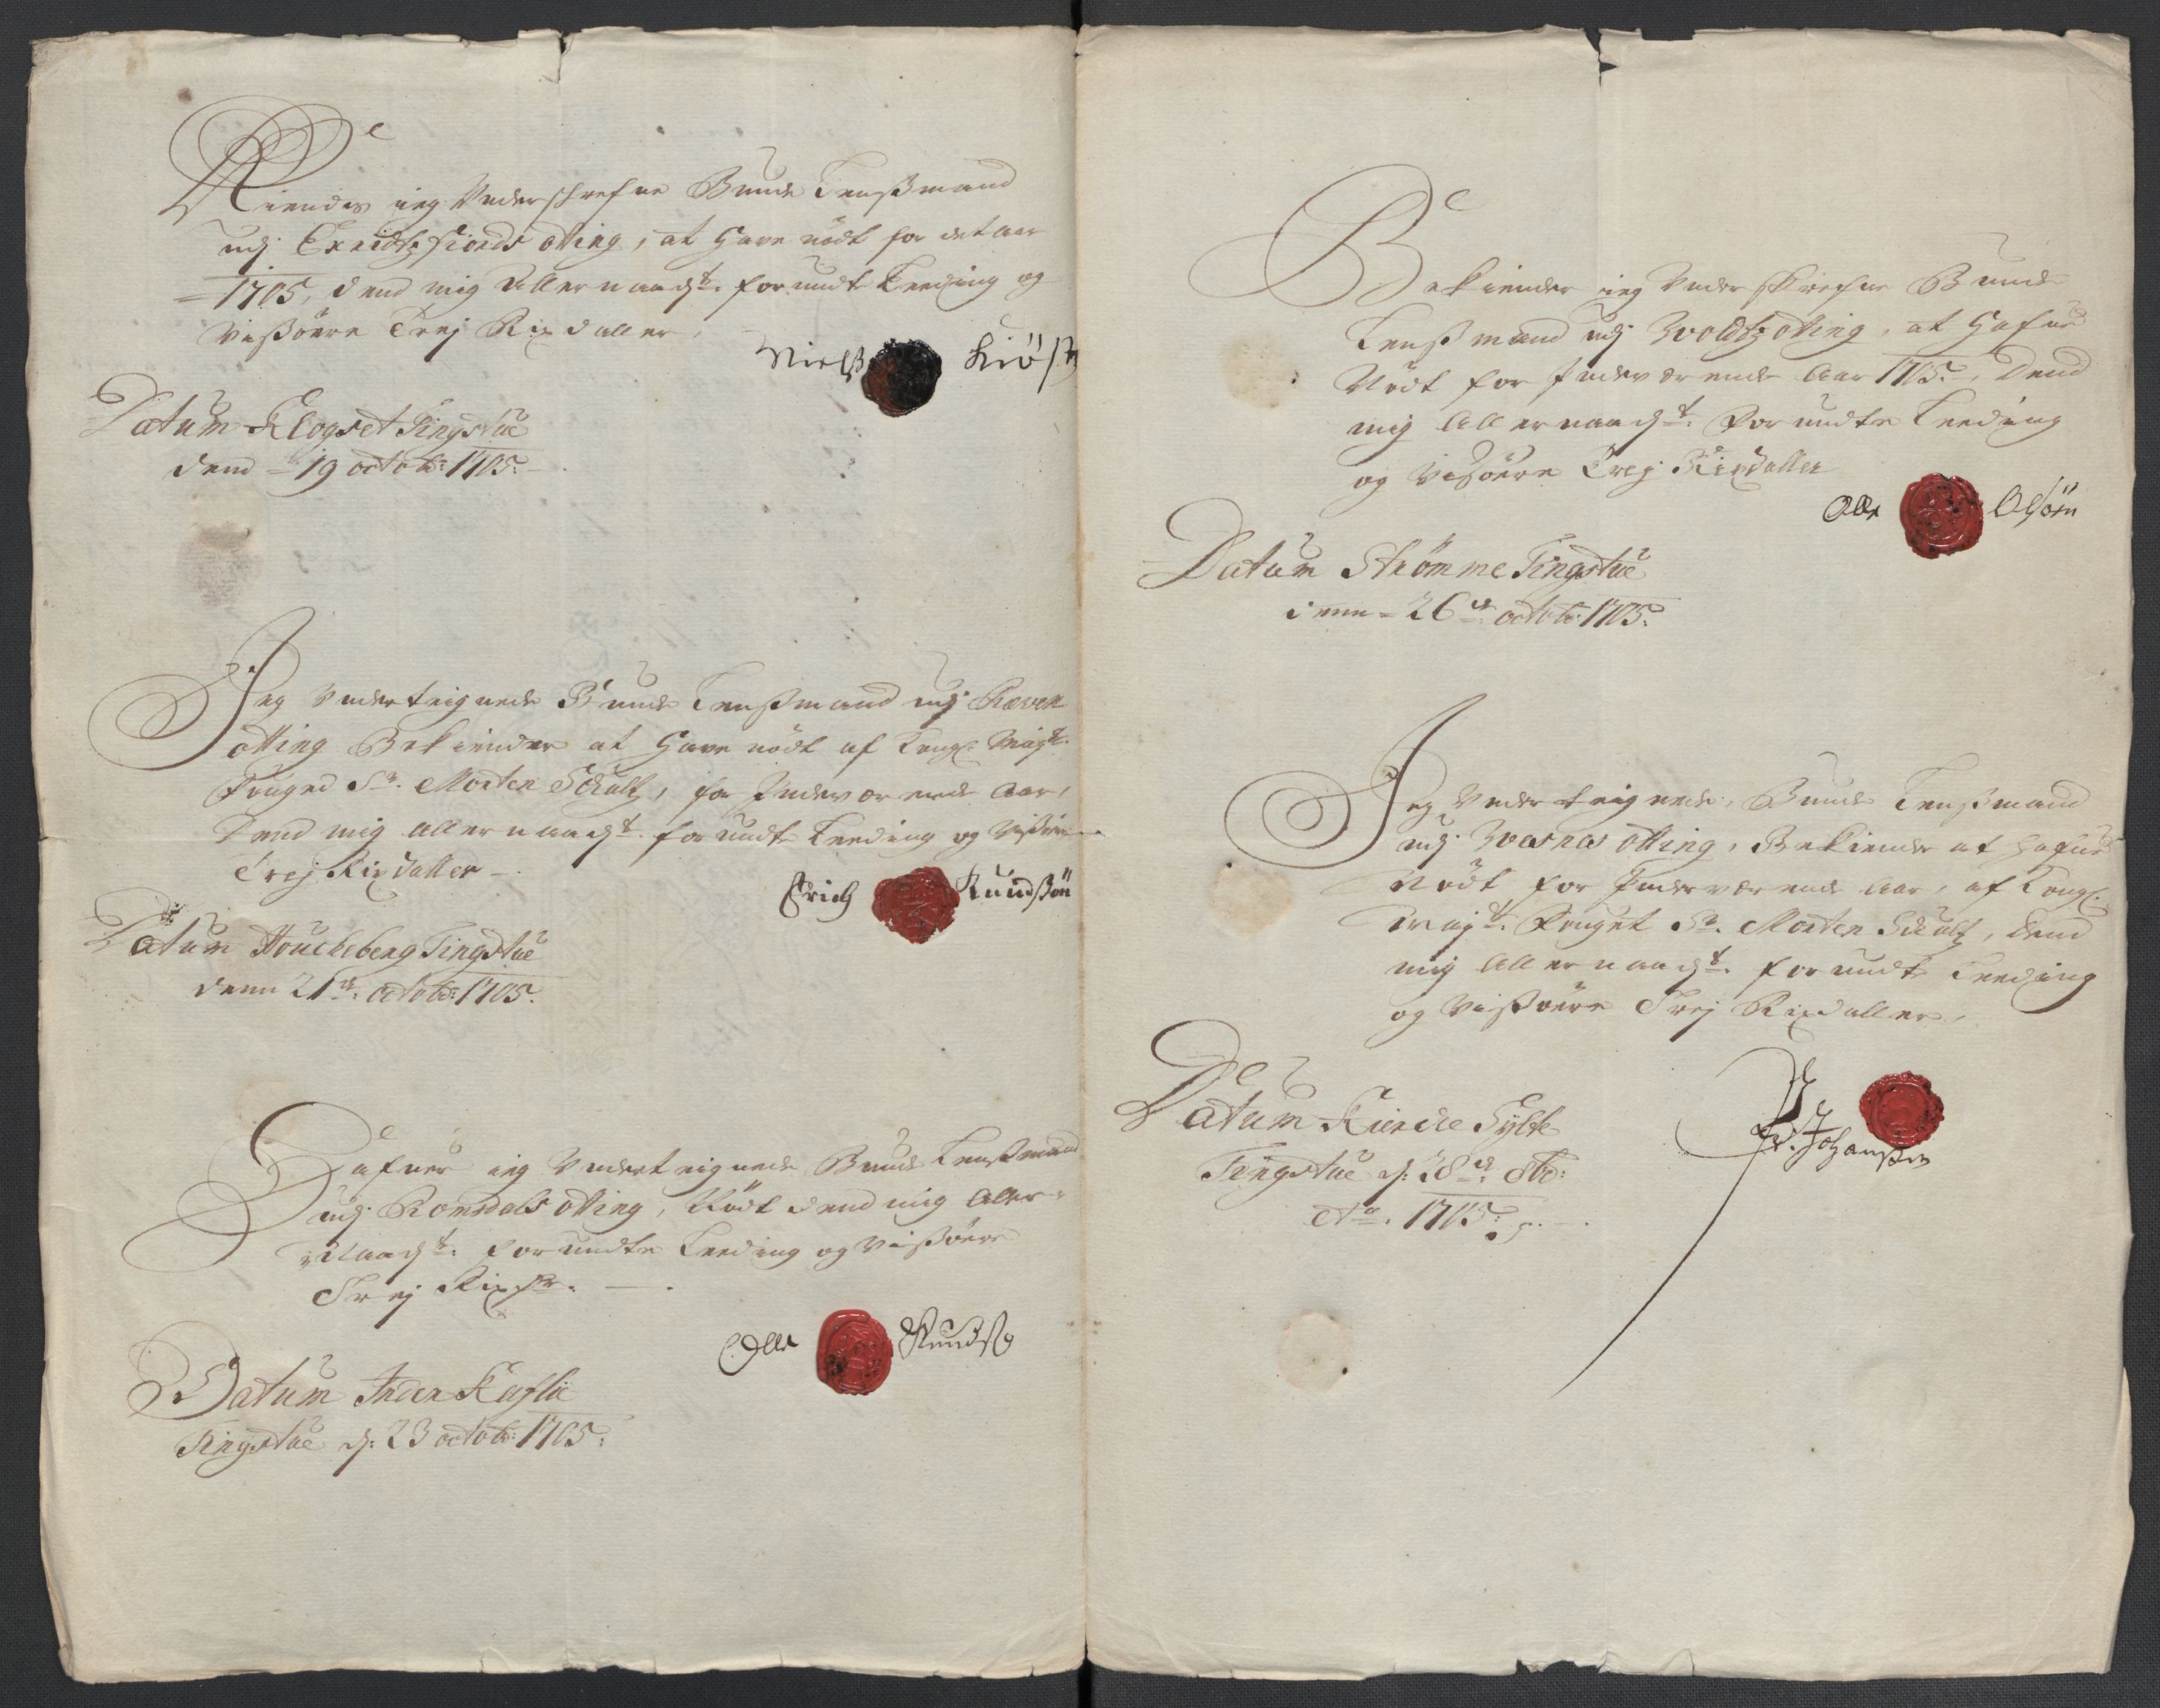 Kiendes ieg Underschrefne Bunde Lenßmand
udj Exeidtzfiords otting, at Have nödt for det aar
1705, dend mig Allernaadgst. forundte Leeding og
Vißöere Trej Rixdaller,
Niels Kiöst
Datum Klogset Tingstue
dend 19 octobr: 1705.
Jeg Underteignede Bunde Lenßmand udj Ræven
otting Bekiender at Have nödt af Kongl: Mayt.
Fouged Sr. Morten Schultz, for Inderværende Aar,
Dend mig allernaadgst. forundte Leeding og Vißöere
Trej Rixdaller
Erich Knudßön
Datum Houcheberg Tingstue
denn 21de. octobr: 1705.
Hafuer ieg Underteignede Bunde Lenßmand
udj Romsdals otting, Nödt dend mig Aller-
Naadgst. forundte Leeding og Vißöere
Trej Rixdr.
Olle Knudß
Datum Inden Kaflie
Tingstue d: 23 octobr: 1705.
Bekiender ieg Underskrefne Bunde
Lenßmand udj Woldtz otting, at Hafue
Nödt for Inderværende Aar 1705, Dend
mig Allernaadgst. Forundte Leeding
og Vißöere Trej Rixdaller
Olle Olsön
Datum Strömme Tingstue
denn 26de octobr: 1705.
Jeg Underteignede, Bunde Lenßmand
udj Wasnæs otting, Bekiender at Hafue
Nödt for Inderværende Aar, af Kongl.
Mayt. Fouget Sr. Morten Schultz, Dend
mig Allernaadgst. forundte Leeding
og Vißöere Trej Rixdaller,
Johanßen
Datum Kierche Sylte
Tingstue d: 28de. 8br:
Ao. 1705.